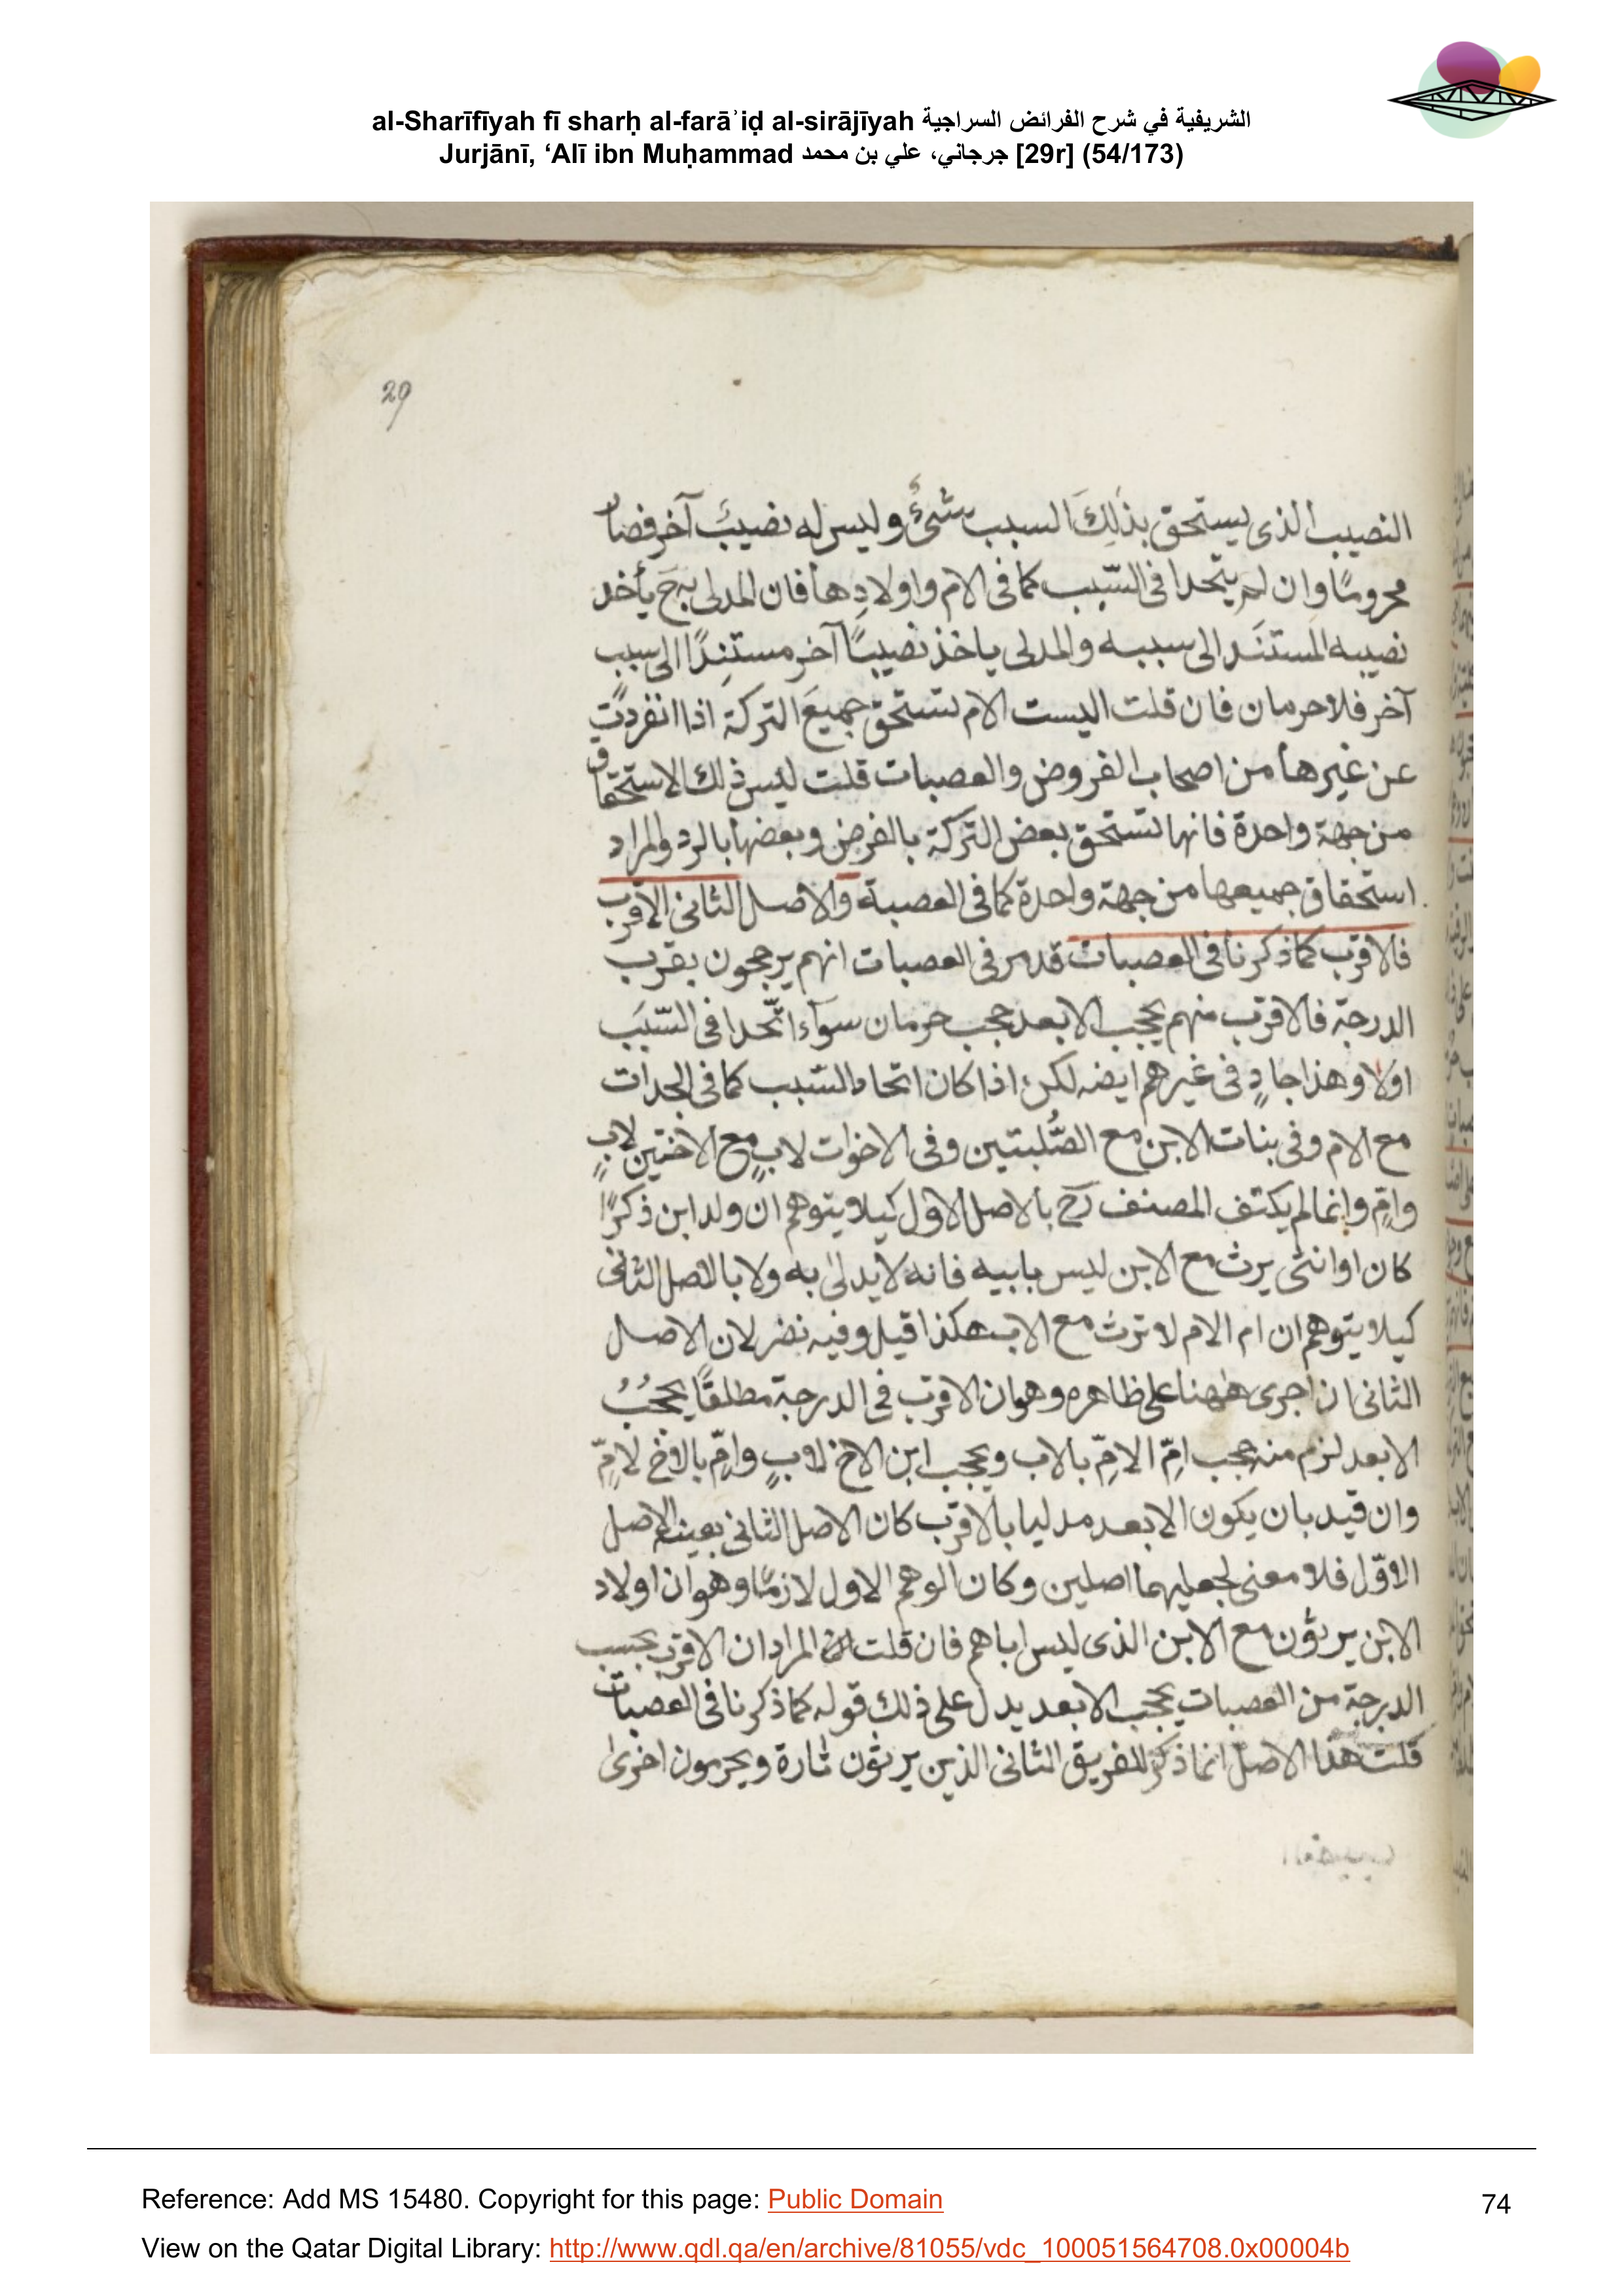 al-Sharīfīyah fī sharḥ al-farāʾiḍ al-sirājīyah الشريفية في شرح الفرائض السراجية
Jurjānī, ‘Alī ibn Muḥammad جرجاني، علي بن محمد [29r] (54/173)
29
النصيب الذى يستحق بذلِكَ السبب شئٌ وليس له نصيبَ آخر فصار
محرومًا وان لم يتحدا فى السّبب كما فى الام واولادِها فان المدلى به ح يأخد
نصيبه المستنَد الى سببه والمدلى ياخذ نصيبًا آخر مستنِدًا الى سبب
آخر فلا حرمان فان قلت اليست الام تستحق جميعَ التركة اذا انفردت
عن غيرها من اصحاب الفروض والعصبات قلت ليس ذلك الاستحقاق
من جهة واحدة فانها تستحق بعض التركة بالفرض وبعضها بالرد والمراد
استحقاق جميعها من جهة واحدة كما فى العصبة والاصل الثانى الاقرب
فالاقرب كما ذكرنا فى العصبات قد مر فى العصبات انهم يرجحون بقرب
الدرجة فالاقرب منهم يحجب الابعد حجب حرمان سوآء اتّحدا فى السّبَب
اولا وهذا جارٍ فى غيرهم ايضه لكن اذا كان اتحاد السّبب كما فى الجدات
مع الام وفى بنات الابن مع الصُّلبتين وفى الاخوات لابٍ مع الاختين لابٍ
وامٍّ وانما لم يكتف المصنف رح بالاصل الاول كيلا يتوهم ان ولد ابن ذكرًا
كان او انثى يرث مع الابن ليس بابيه فانه لا يدلى به ولا بالاصل الثانى
كيلا يتوهم ان ام الام لا ترث مع الاب هكذا قيل وفيه نضر لان الاصل
الثانى ان اجرى ههنا على ظاهره وهو ان الاقرب فى الدرجة مطلقًا يحجُبُ
الابعد لزم منه حجب امِّ الامِّ بالاب ويحجب ابن الاخ لابٍ وامٍّ بالاخ لامٍّ
وان قيد بان يكون الابعد مدليا بالاقرب كان الاصل الثانى بعينه الاصل
الاوّل فلا معنى لجعليهما اصلين وكان الوهم الاول لازمًا وهو ان اولاد
الابن يرثون مع الابن الذى ليس اباهم فان قلت المراد ان الاقرب بحسب
الدرجة من العصبات يحجب الابعد يدل على ذلك قوله كما ذكرنا فى العصبات
قلت هذا الاصل انما ذكر للفريق الثانى الذين يرثون تارة ويحرمون اخرى
Reference: Add MS 15480. Copyright for this page: Public Domain
74
View on the Qatar Digital Library: http://www.qdl.qa/en/archive/81055/vdc_100051564708.0x00004b